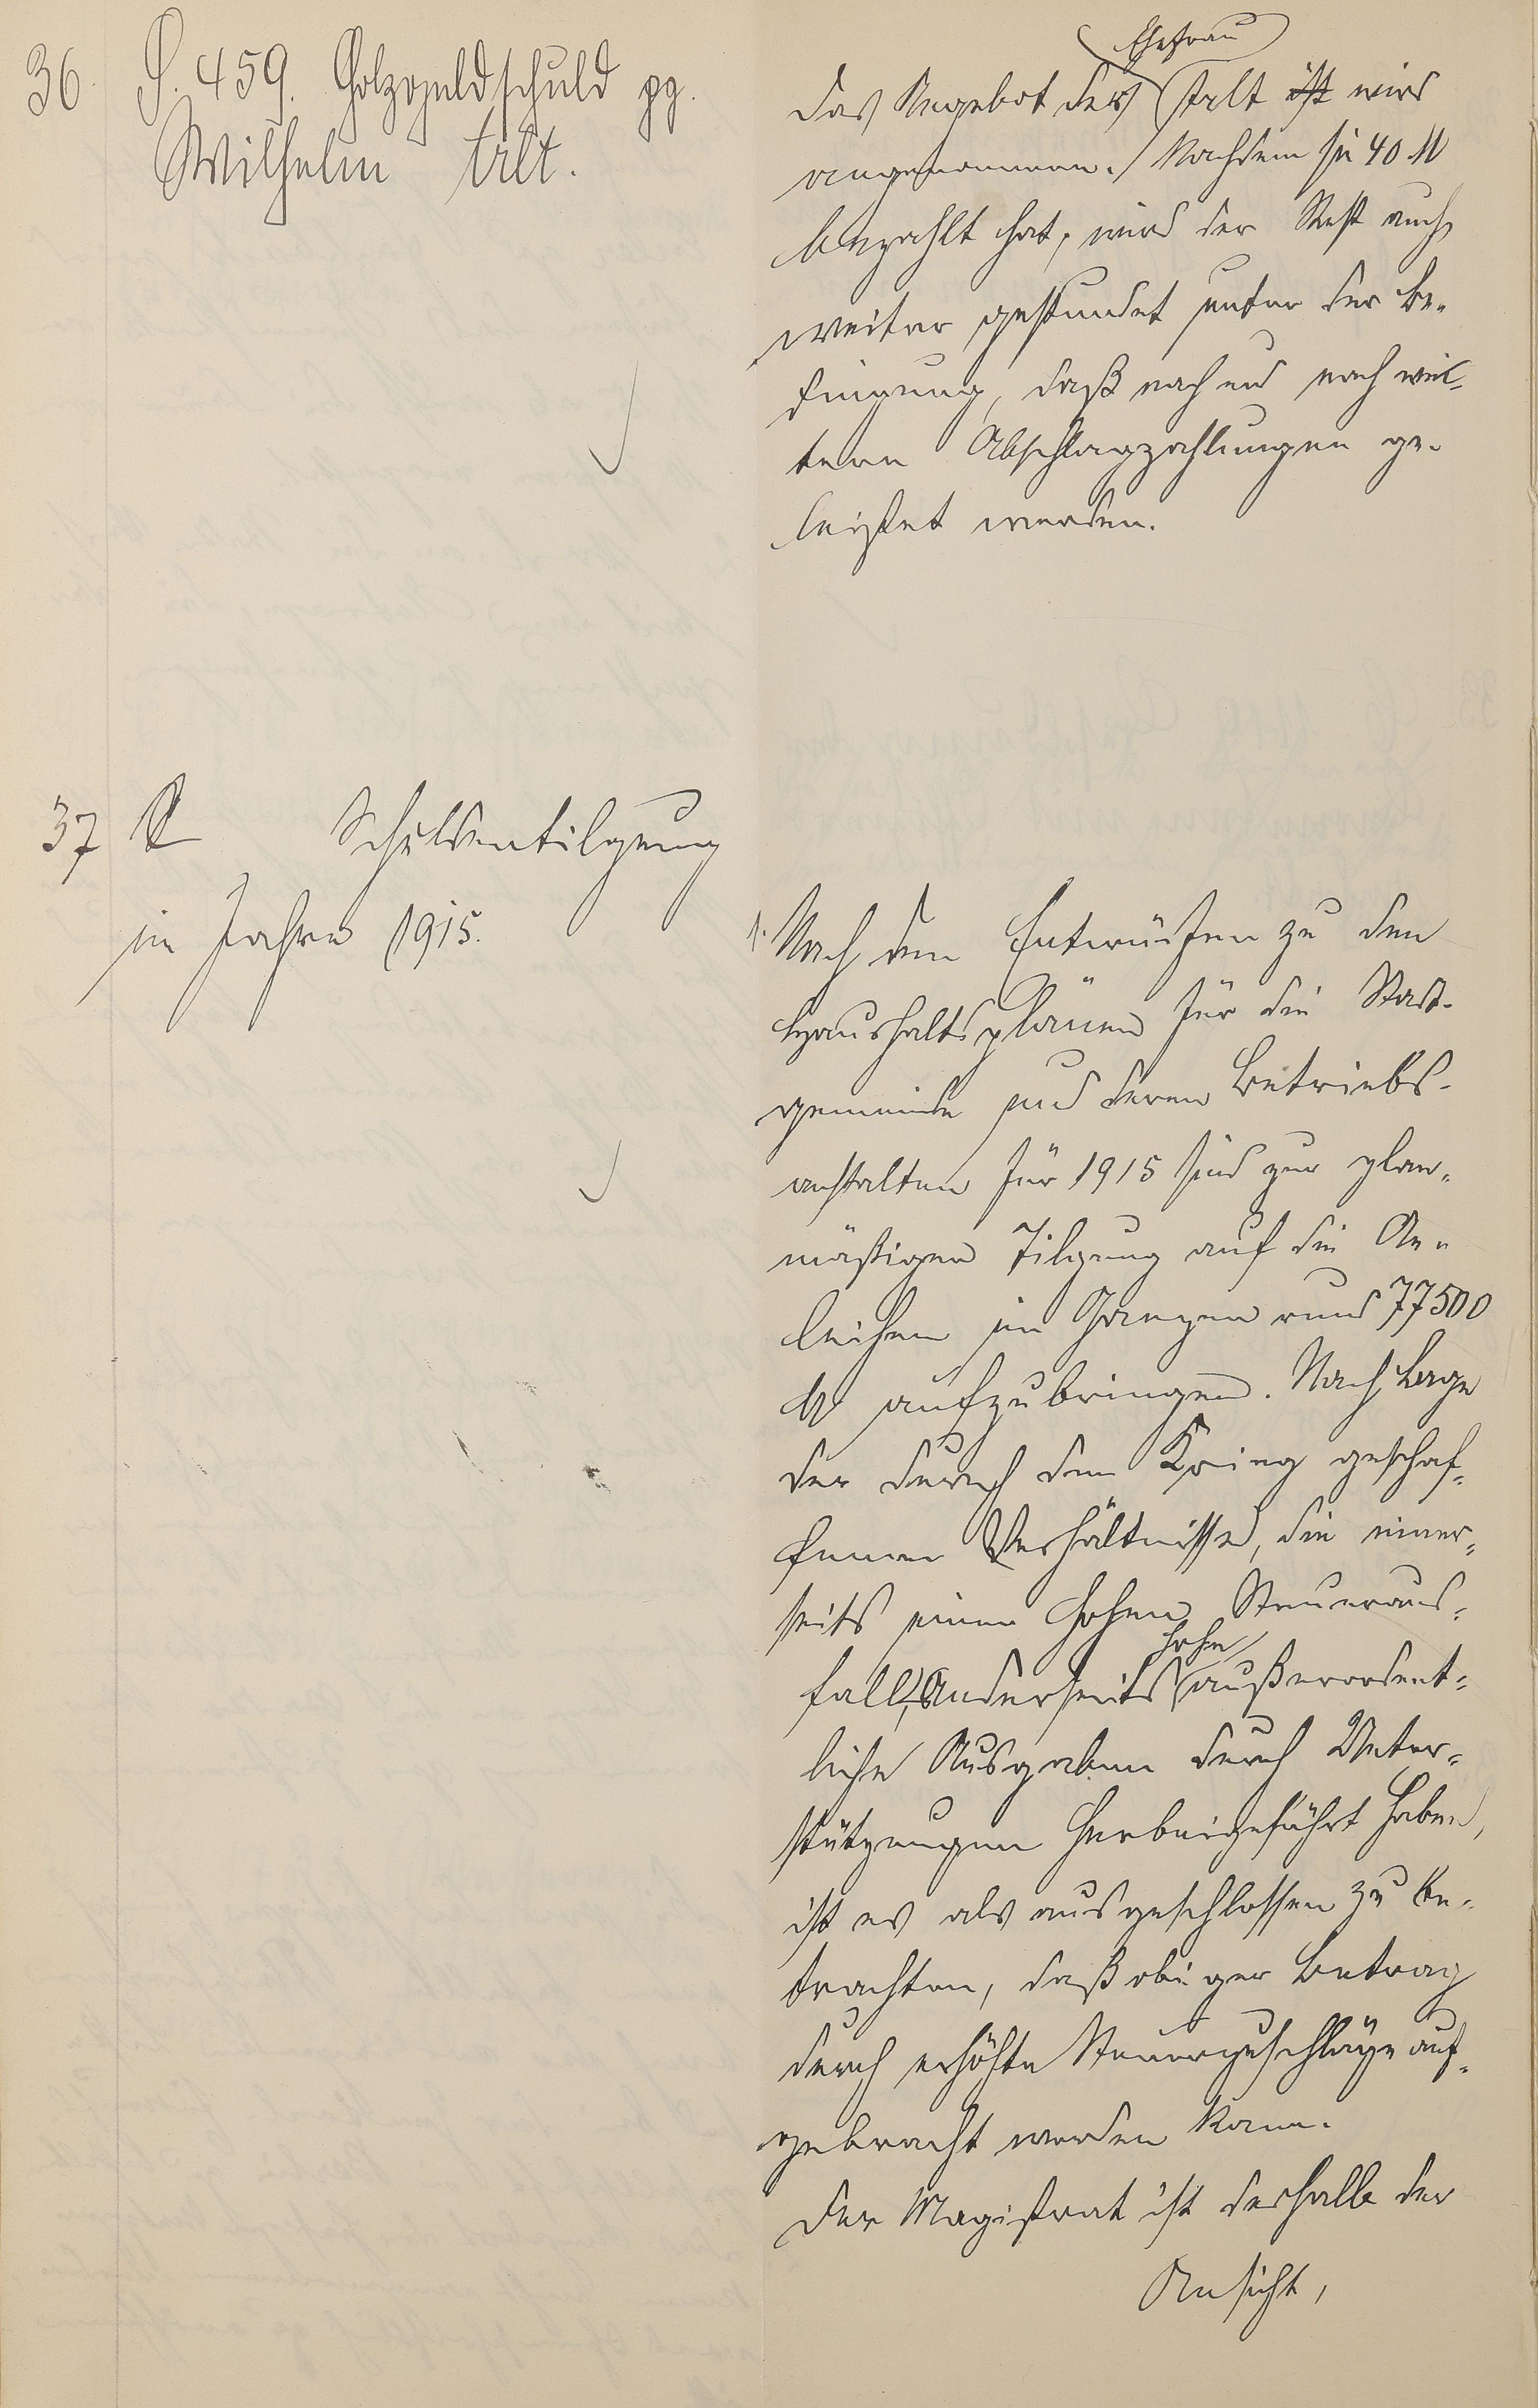 36. S. 459. Holzgeldschuld pg.
Wilhelm Ult.
Ehefrau
Das Angebot der Ult ist wird
angenommen. Nachdem sie 40 M
bezahlt hat, wird der Rest auch
weiter gestundet unter der Be-
dingung, daß nach und nach wei-
tere Abschlagzahlungen ge-
leistet werden.
37 Schuldentilgung
im Jahre 1915.
1. Nach den Entwürfen zu den
Haushaltsplänen für die Stadt-
gemeinde und deren Betriebs-
anstalten für 1915 sind zur plan-
mäßigen Tilgung auf die An-
leihen im Ganzen rund 77500
M aufzubringen. Nach Lage
der durch den Krieg geschaf-
fenen Verhältnisse, die einer-
seits einen hohen Steueraus-
hohe
fall, anderseits außerordent-
liche Ausgaben durch Unter-
stützungen herbeigeführt haben,
ist es als ausgeschlossen zu be-
trachten, daß obiger Betrag
durch erhöhte Steuerzuschläge auf-
gebracht werden kann.
Der Magistrat ist deshalb der
Ansicht,